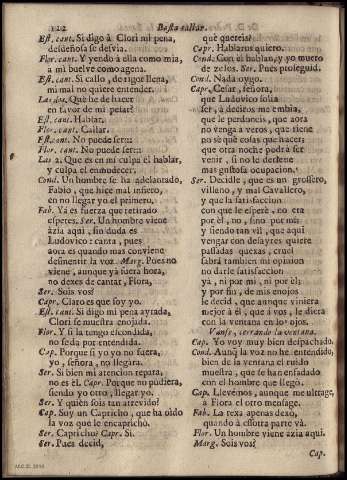 122 Basta callar.
Est. cant. Si digo à Clori mi pena,
desdeñosa se desvia.
Flor. cant. Y yendo à ella como mia,
a mi buelve como agena.
Est. cant. Si callo, de sigor llena,
mi mal no quiere entender.
Las dos. Què he de hacer
en favor de mi pesar?
Est. cant. Hablar.
Flor. cant. Callar.
Est. cant. No puede ser:
Flor. cant. No puede ser:
Las 2. Que es en mi culpa el hablar,
y culpa el enmudecer.
Cond. Un hombre se ha adelantado,
Fabio, que hice mal infiero,
en no llegar yo el primero.
Fab. Yà es fuerza que retirado
esperes. Ser. Un hombre viene
àzia aqui, sin duda es
Ludovico: canta, pues
aora es quando mas conviene
desmentir la voz. Marg. Pues no
viene, aunque yà fuera hora,
no dexes de cantar, Flora,
Ser. Sois vos?
Capr. Claro es que soy yo.
Est. cant. Si digo mi pena ayrada,
Clori se muestra enojada.
Flor. Y si la tengo escondida,
no se da por entendida.
Cap. Porque si yo yo no fuera,
yo, señora, no llegàra.
Ser. Si bien mi atencion repara,
no es èl. Capr. Porque no pudiera,
siendo yo otro, llegar yo.
Ser. Y quièn sois tan atrevido?
Cap. Soy un Capricho, que ha oido
la voz que le encapricho.
Ser. Capricho? Capr. Si.
Ser. Pues decid,
què quereis?
Capr. Hablaros quiero.
Cond. Con èl hablan, y yo muero
de zelos. Ser. Pues proseguid.
Cond. Nada oygo.
Capr. Cesar, señora,
que Ludovico solia
ser, à deciros me embia,
que le perdoneis, que aora
no venga à veros, que tiene
no sè què cosas que hacer;
que otra noche podrà ser
venir, si no le detiene
mas gustosa ocupacion.
Ser. Decidle, que es un grossero,
villano, y mal Cavallero,
y que la satisfaccion
con que le esperè, no era
por èl, no, sino por mi:
y siendo tan vil, que aqui
vengar con desayres quiere
passadas quexas, cruel
sabrà tambien mi opinion
no darle satisfaccion
yà, ni por mi, ni por èl;
y por fin, de mis enojos
le decid, que aunque viniera
mejor à èl, que à vos, le diera
con la ventana en los ojos.
Vanse, cerrando la ventana.
Cap. Yo voy muy bien despachado.
Cond. Aunq̃ la voz no he entendido,
bien de la ventana el ruido
muestra, que se han enfadado
con el hombre que llegò.
Cap. Llevèmos, aunque me ultrage,
à Flora el otro mensage.
Fab. La rexa apenas dexò,
quando à estotra parte và.
Flor. Un hombre viene àzia aqui.
Marg. Sois vos?
Cap.